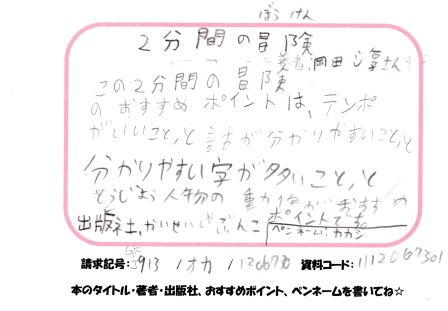 ぼうけん
2分間の冒険
著者:岡田淳さん
この2分間の冒険
のおすすめポイントは、テンポ
がいいこと、と話が分かりやすいこと、と
分かりやすい字が多いこと、と
とうじょう人物の動きがおすすめの
ポイントです。
出版社、かいせいしゃ
ペンネーム:カカシ
請求記号: J913 /オカ /
資料コード:
本のタイトル・著者・出版社、おすすめポイント、ペンネームを書いてね☆